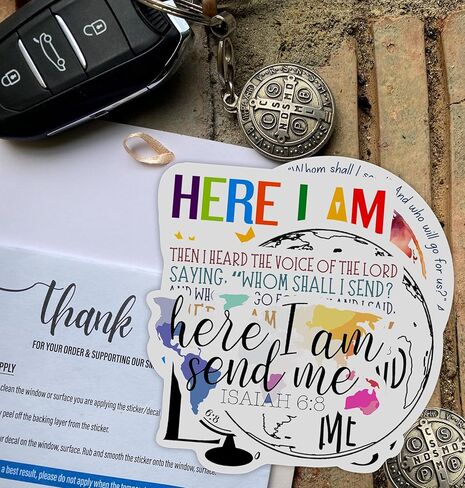 "Whom shall I s
And who will go for us?"
HERE I AM
THEN I HEARD THE VOICE OF THE LORD
SAYING, "WHOM SHALL I SEND?
AND WH GO FO AND I SAID,
HERE I AM
here I am
send me
ISAIAH 6:8
ND
ME
6:8
thank
FOR YOUR ORDER & SUPPORTING OUR SM
PPLY
clean the window or surface you are applying the sticker/decal
peel off the backing layer from the sticker.
ur decal on the window, surface. Rub and smooth the sticker onto the window, surface.
a best result, please do not apply when the
CSSML
NDSMD